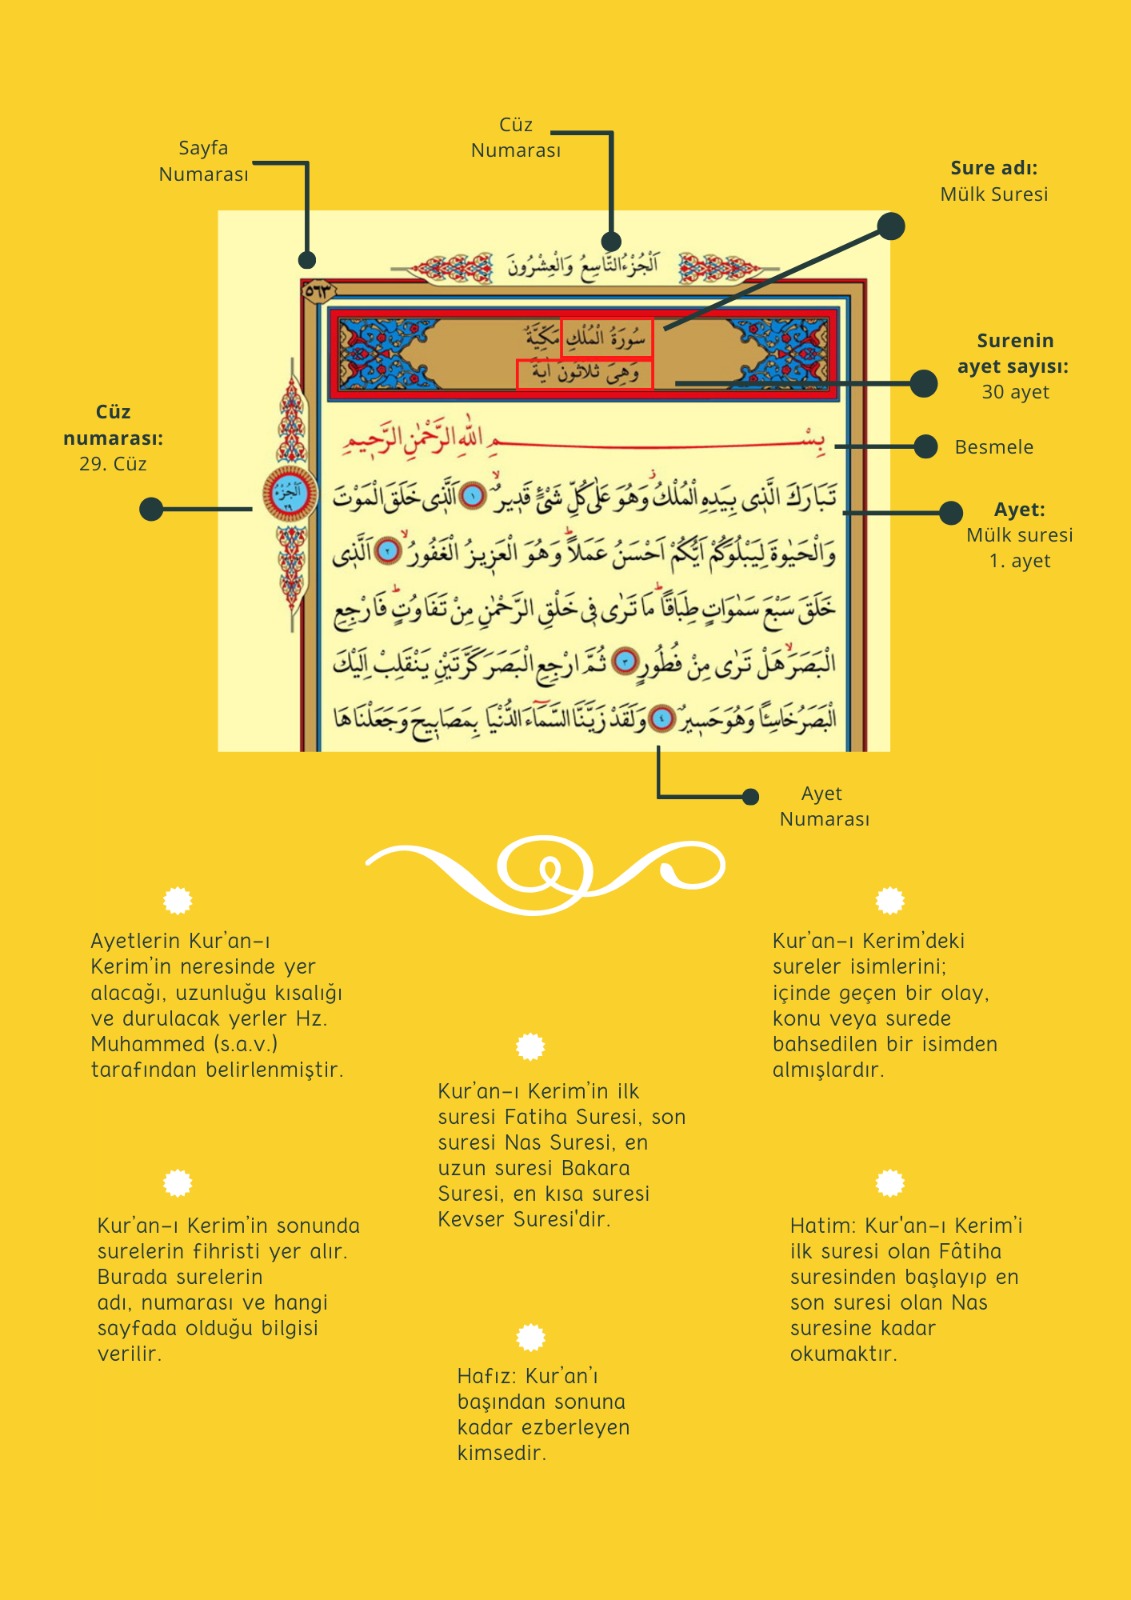 Cüz
Numarası
Sayfa
Numarası
Sure adı:
Mülk Suresi
اَلْجُزْءُ التَّاسِعُ وَالْعِشْرُونَ
٥٦٣
سُورَةُ الْمُلْكِ مَكِّيَّةٌ
وَهِىَ ثَلاَثُونَ اٰيَةً
Surenin
ayet sayısı:
30 ayet
Cüz
numarası:
29. Cüz
بِسْمِ اللّٰهِ الرَّحْمٰنِ الرَّحِيمِ
Besmele
اَلْجُزْءُ
٢٩
تَبَارَكَ الَّذٖى بِيَدِهِ الْمُلْكُ وَهُوَ عَلٰى كُلِّ شَىْءٍ قَدٖيرٌ ١ اَلَّذٖى خَلَقَ الْمَوْتَ
Ayet:
Mülk suresi
1. ayet
وَالْحَيٰوةَ لِيَبْلُوَكُمْ اَيُّكُمْ اَحْسَنُ عَمَلاً وَهُوَ الْعَزٖيزُ الْغَفُورُ ٢ اَلَّذٖى
خَلَقَ سَبْعَ سَمٰوَاتٍ طِبَاقًا مَا تَرٰى فٖى خَلْقِ الرَّحْمٰنِ مِنْ تَفَاوُتٍ فَارْجِعِ
الْبَصَرَ هَلْ تَرٰى مِنْ فُطُورٍ ٣ ثُمَّ ارْجِعِ الْبَصَرَ كَرَّتَيْنِ يَنْقَلِبْ اِلَيْكَ
الْبَصَرُ خَاسِئًا وَهُوَ حَسٖيرٌ ٤ وَلَقَدْ زَيَّنَّا السَّمَاءَ الدُّنْيَا بِمَصَابٖيحَ وَجَعَلْنَاهَا
Ayet
Numarası
Ayetlerin Kur'an-ı
Kerim'in neresinde yer
alacağı, uzunluğu kısalığı
ve durulacak yerler Hz.
Muhammed (s.a.v.)
tarafından belirlenmiştir.
Kur'an-ı Kerim'deki
sureler isimlerini;
içinde geçen bir olay,
konu veya surede
bahsedilen bir isimden
almışlardır.
Kur'an-ı Kerim'in ilk
suresi Fatiha Suresi, son
suresi Nas Suresi, en
uzun suresi Bakara
Suresi, en kısa suresi
Kevser Suresi'dir.
Kur'an-ı Kerim'in sonunda
surelerin fihristi yer alır.
Burada surelerin
adı, numarası ve hangi
sayfada olduğu bilgisi
verilir.
Hatim: Kur'an-ı Kerim'i
ilk suresi olan Fâtiha
suresinden başlayıp en
son suresi olan Nas
suresine kadar
okumaktır.
Hafız: Kur'an'ı
başından sonuna
kadar ezberleyen
kimsedir.